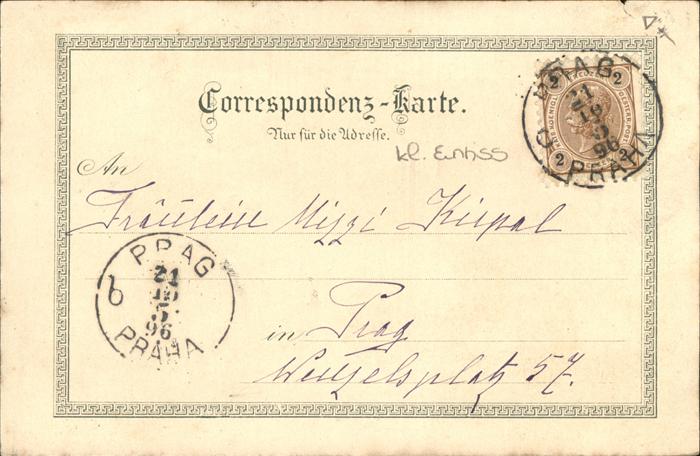 Correspondenz-Karte.
Nur für die Adresse.
kl. Einriss
An
Fräulein Mizzi
in Prag
Wenzelsplatz 57.
PRAG
21
10
96
PRAHA
6
PRAG
21
10
96
PRAHA
2
2
2
2